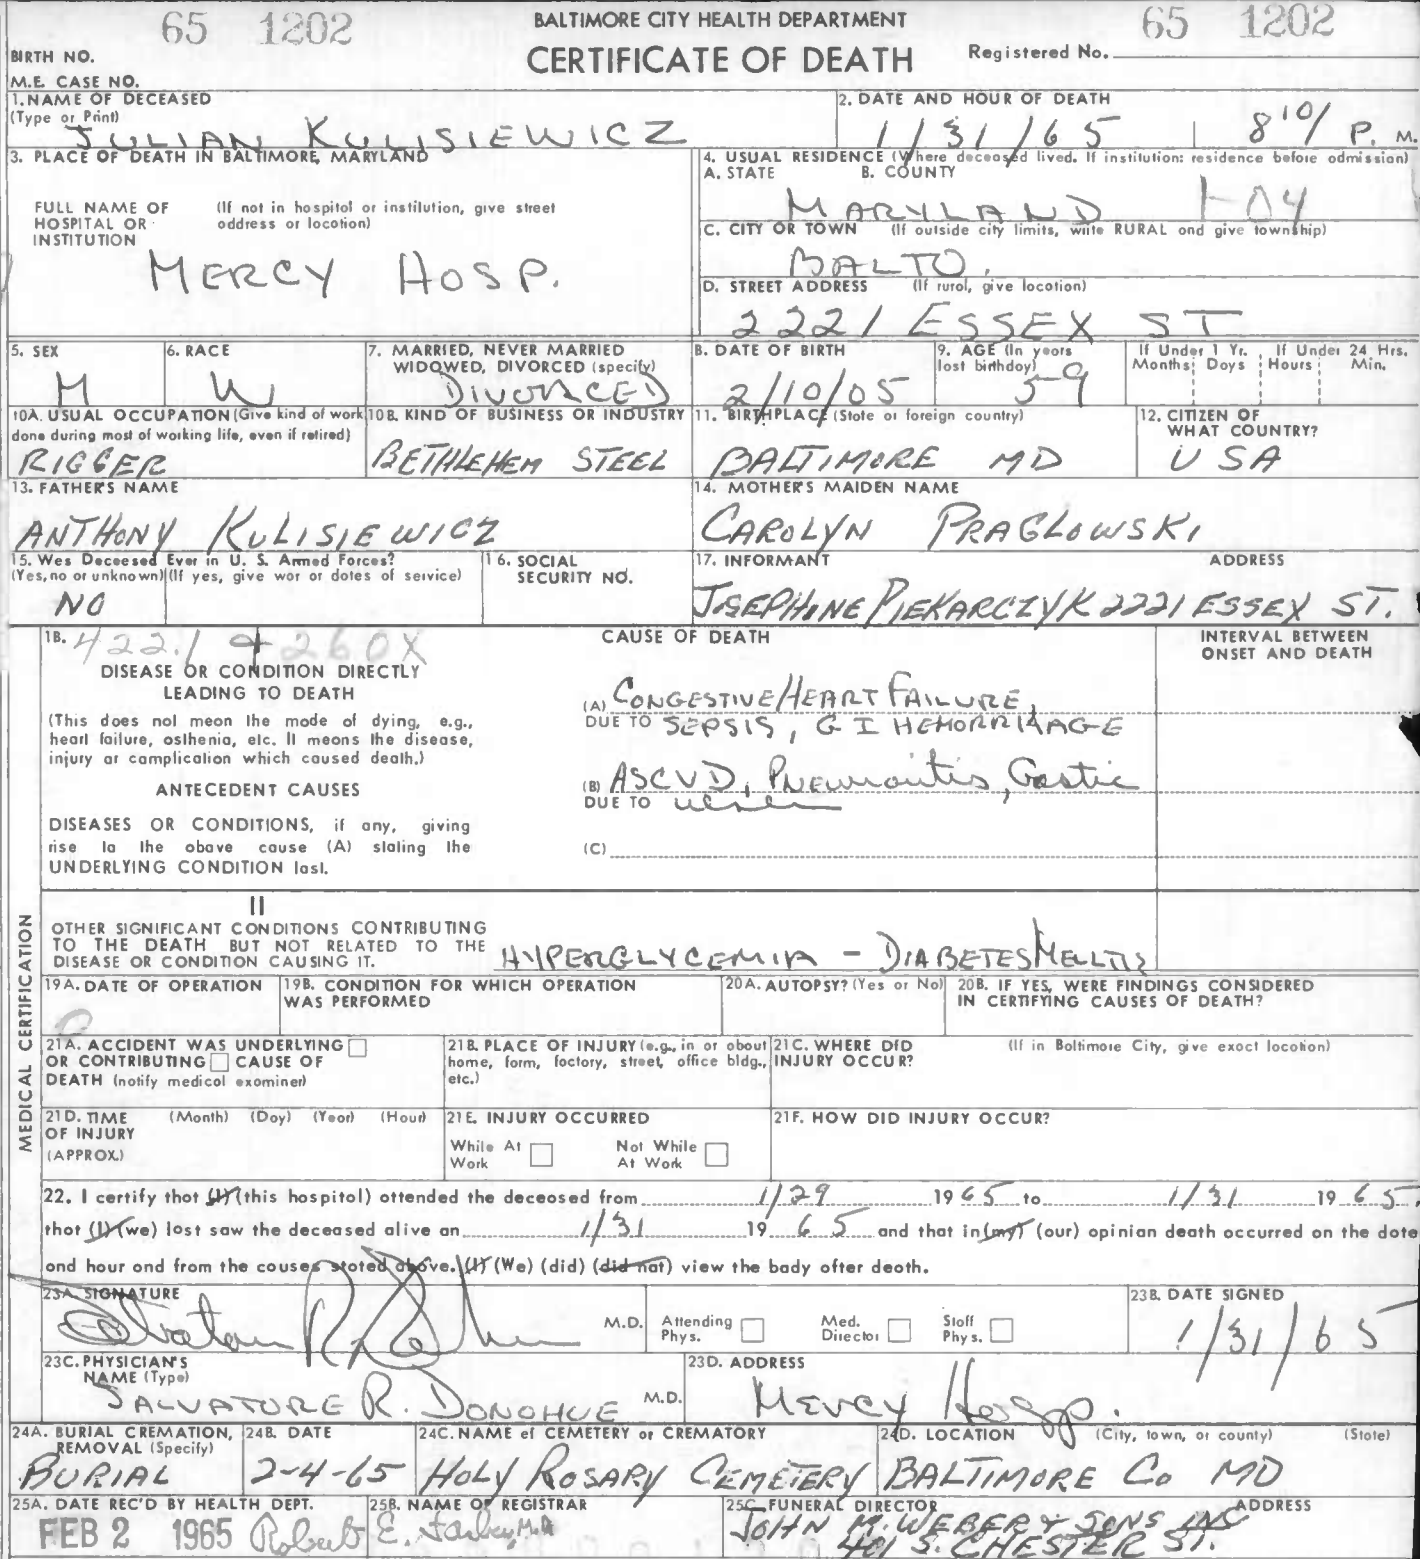 65 1202
BALTIMORE CITY HEALTH DEPARTMENT
65 1202
BIRTH NO.
CERTIFICATE OF DEATH
Registered No.
M.E. CASE NO.
1. NAME OF DECEASED
(Type or Print)
JULIAN KULISIEWICZ
2. DATE AND HOUR OF DEATH
1/31/65 8 10/ P. M.
3. PLACE OF DEATH IN BALTIMORE, MARYLAND
FULL NAME OF HOSPITAL OR INSTITUTION
(If not in hospital or institution, give street address or location)
MERCY HOSP.
4. USUAL RESIDENCE (Where deceased lived. If institution: residence before admission)
A. STATE B. COUNTY
MARYLAND 1-04
C. CITY OR TOWN (If outside city limits, write RURAL and give township)
BALTO.
D. STREET ADDRESS (If rural, give location)
2221 ESSEX ST
5. SEX
M
6. RACE
W
7. MARRIED, NEVER MARRIED
WIDOWED, DIVORCED (specify)
DIVORCED
8. DATE OF BIRTH
2/10/05
9. AGE (In years
last birthday)
59
If Under 1 Yr.
Months Days
If Under 24 Hrs.
Hours Min.
10A. USUAL OCCUPATION (Give kind of work
done during most of working life, even if retired)
RIGGER
10B. KIND OF BUSINESS OR INDUSTRY
BETHLEHEM STEEL
11. BIRTHPLACE (State or foreign country)
BALTIMORE MD
12. CITIZEN OF
WHAT COUNTRY?
USA
13. FATHER'S NAME
ANTHONY KULISIEWICZ
14. MOTHER'S MAIDEN NAME
CAROLYN PRAGLOWSKI
15. Was Deceased Ever in U. S. Armed Forces?
(Yes, no or unknown) (If yes, give war or dates of service)
NO
16. SOCIAL
SECURITY NO.
17. INFORMANT ADDRESS
JOSEPHINE PIEKARCZYK 2221 ESSEX ST.
18.
422.1 + 260X
DISEASE OR CONDITION DIRECTLY
LEADING TO DEATH
(This does not mean the mode of dying, e.g.,
heart failure, asthenia, etc. It means the disease,
injury or complication which caused death.)
ANTECEDENT CAUSES
DISEASES OR CONDITIONS, if any, giving
rise to the above cause (A) stating the
UNDERLYING CONDITION last.
CAUSE OF DEATH
(A) CONGESTIVE HEART FAILURE,
DUE TO SEPSIS, G I HEMORRHAGE
(B) ASCVD, PNEUMONITIS, Gastric
DUE TO ulcer
(C)
INTERVAL BETWEEN
ONSET AND DEATH
II
OTHER SIGNIFICANT CONDITIONS CONTRIBUTING
TO THE DEATH BUT NOT RELATED TO THE
DISEASE OR CONDITION CAUSING IT.
HYPERGLYCEMIA - DIABETES MELLTIS
MEDICAL CERTIFICATION
19A. DATE OF OPERATION
0
19B. CONDITION FOR WHICH OPERATION
WAS PERFORMED
20A. AUTOPSY? (Yes or No)
20B. IF YES, WERE FINDINGS CONSIDERED
IN CERTIFYING CAUSES OF DEATH?
21A. ACCIDENT WAS UNDERLYING
OR CONTRIBUTING CAUSE OF
DEATH (notify medical examiner)
21B. PLACE OF INJURY (e.g., in or about
home, farm, factory, street, office bldg.,
etc.)
21C. WHERE DID
INJURY OCCUR?
(If in Baltimore City, give exact location)
21D. TIME (Month) (Day) (Year) (Hour)
OF INJURY
(APPROX.)
21E. INJURY OCCURRED
While At Work
Not While At Work
21F. HOW DID INJURY OCCUR?
22. I certify that (I) (this hospital) attended the deceased from 1/29 1965 to 1/31 1965,
that (I) (we) last saw the deceased alive on 1/31 1965 and that in (my) (our) opinion death occurred on the date
and hour and from the causes stated above. (I) (We) (did) (did not) view the body after death.
23A. SIGNATURE
M.D.
Attending Phys.
Med. Director
Staff Phys.
23B. DATE SIGNED
1/31/65
23C. PHYSICIAN'S
NAME (Type)
SALVATORE R. DONOHUE M.D.
23D. ADDRESS
Mercy Hosp.
24A. BURIAL CREMATION,
REMOVAL (Specify)
BURIAL
24B. DATE
2-4-65
24C. NAME of CEMETERY or CREMATORY
HOLY ROSARY CEMETERY
24D. LOCATION (City, town, or county) (State)
BALTIMORE Co MD
25A. DATE REC'D BY HEALTH DEPT.
FEB 2 1965
25B. NAME OF REGISTRAR
Robert E. Farber, M.D.
25C. FUNERAL DIRECTOR ADDRESS
JOHN M. WEBER & SONS INC
401 S. CHESTER ST.